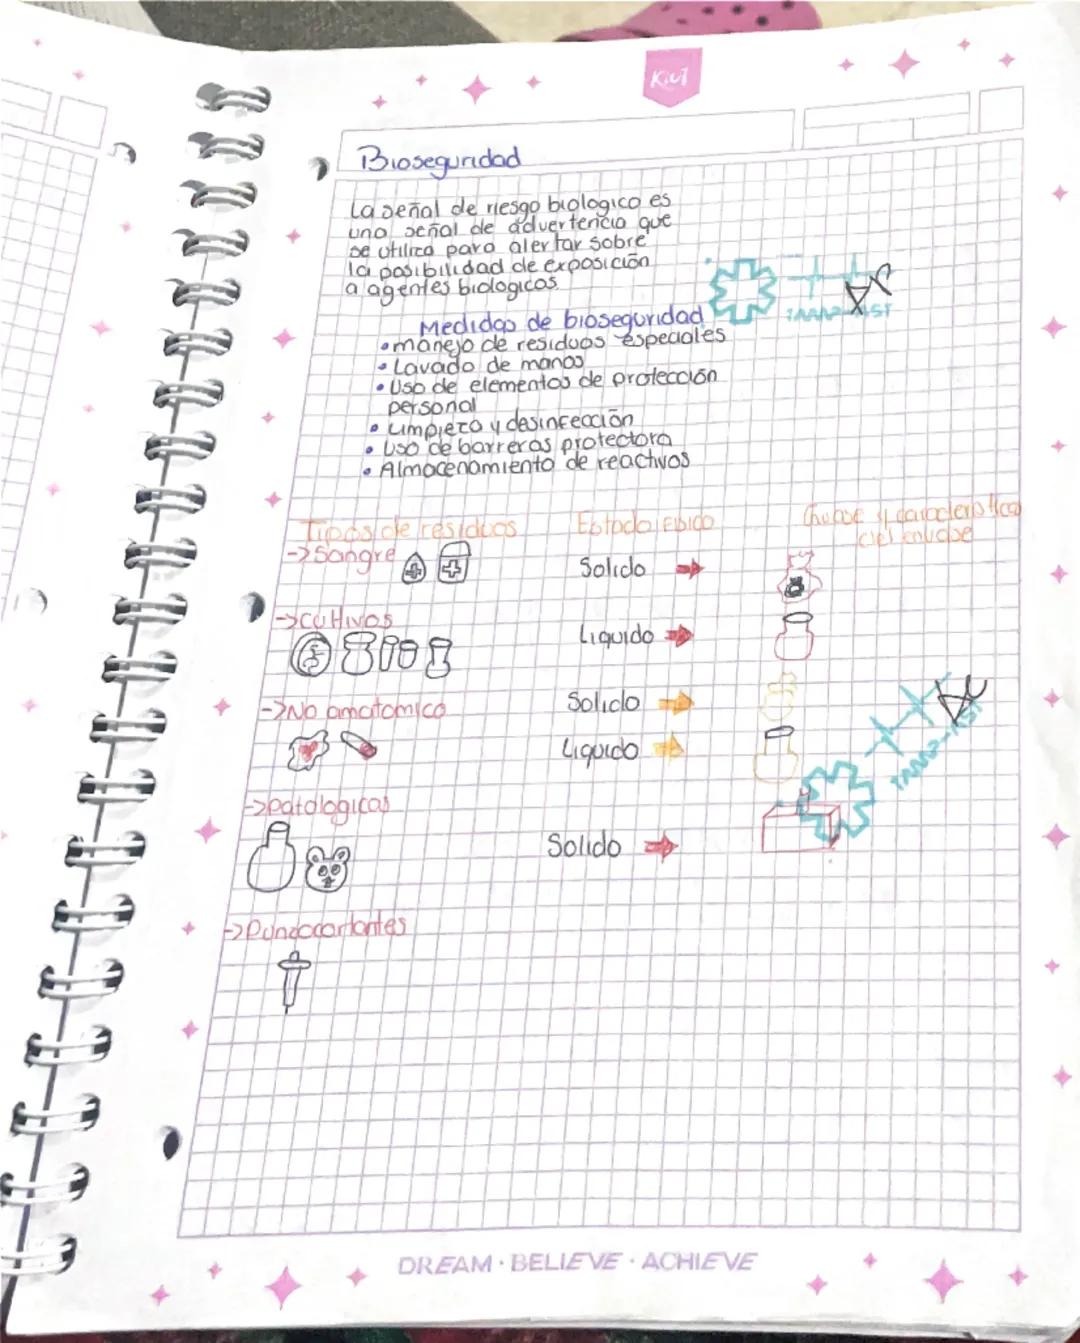 KIUT
Bioseguridad
La señal de riesgo biologico es
una señal de advertencia que
se utiliza para alertar sobre
la posibilidad de exposición
a agentes biologicos
Medidas de bioseguridad
•manejo de residuos especiales
•Lavado de manos
•Uso de elementos de protección
personal
•Limpieza y desinfección
•Uso de barreras protectora
•Almacenamiento de reactivos
Tipos de residuos Estado Fisico y caracteristica
del envase
->Sangre Solido
->cultivos Liquido
->No anatomico Solido
Liquido
->patologicas
Solido
->Punzocortantes
DREAM · BELIEVE · ACHIEVE